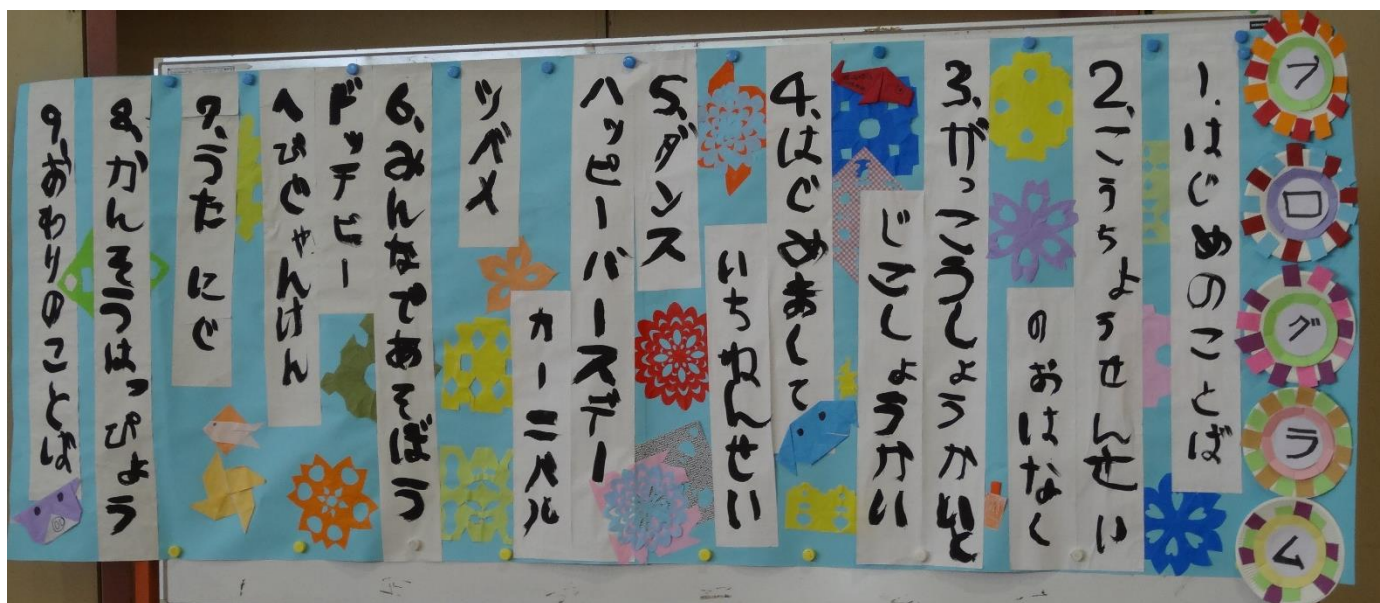 プログラム
1.はじめのことば
2.こうちょうせんせい
のおはなし
3.がっこうしょうかいと
じこしょうかい
4.はじめまして
いちねんせい
5.ダンス
ハッピーバースデー
カーニバル
ツバメ
6.みんなであそぼう
ドッヂビー
へびじゃんけん
7.うた にじ
8.かんそうはっぴょう
9.おわりのことば